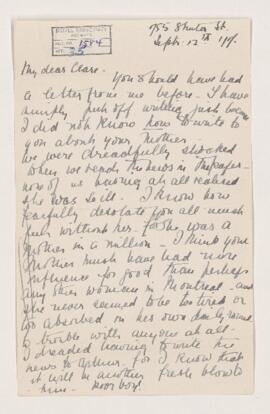 755 Shuter St.
Sept. 12th 19.
My dear Clare.
You should have had
a letter from me before. I have
simply put off writing just because
I did not know how to write to
you about your Mother.
We were dreadfully shocked
when we read the news in the paper
none of us having at all realised
she was so ill. I know how
fearfully desolate you all must
feel without her. for she was a
Mother in a million. I think your
Mother must have had more
influence for good than perhaps
any other woman in Montreal - and
she never seemed to be too tired or
too absorbed in her own
trouble with anyone at all.
I dreaded having to write the
news to Arthur. for I know that
it will be another fresh blow to
him. poor boy!